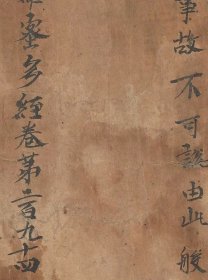 事故不可說由此般
羅蜜多經卷第二百九十四